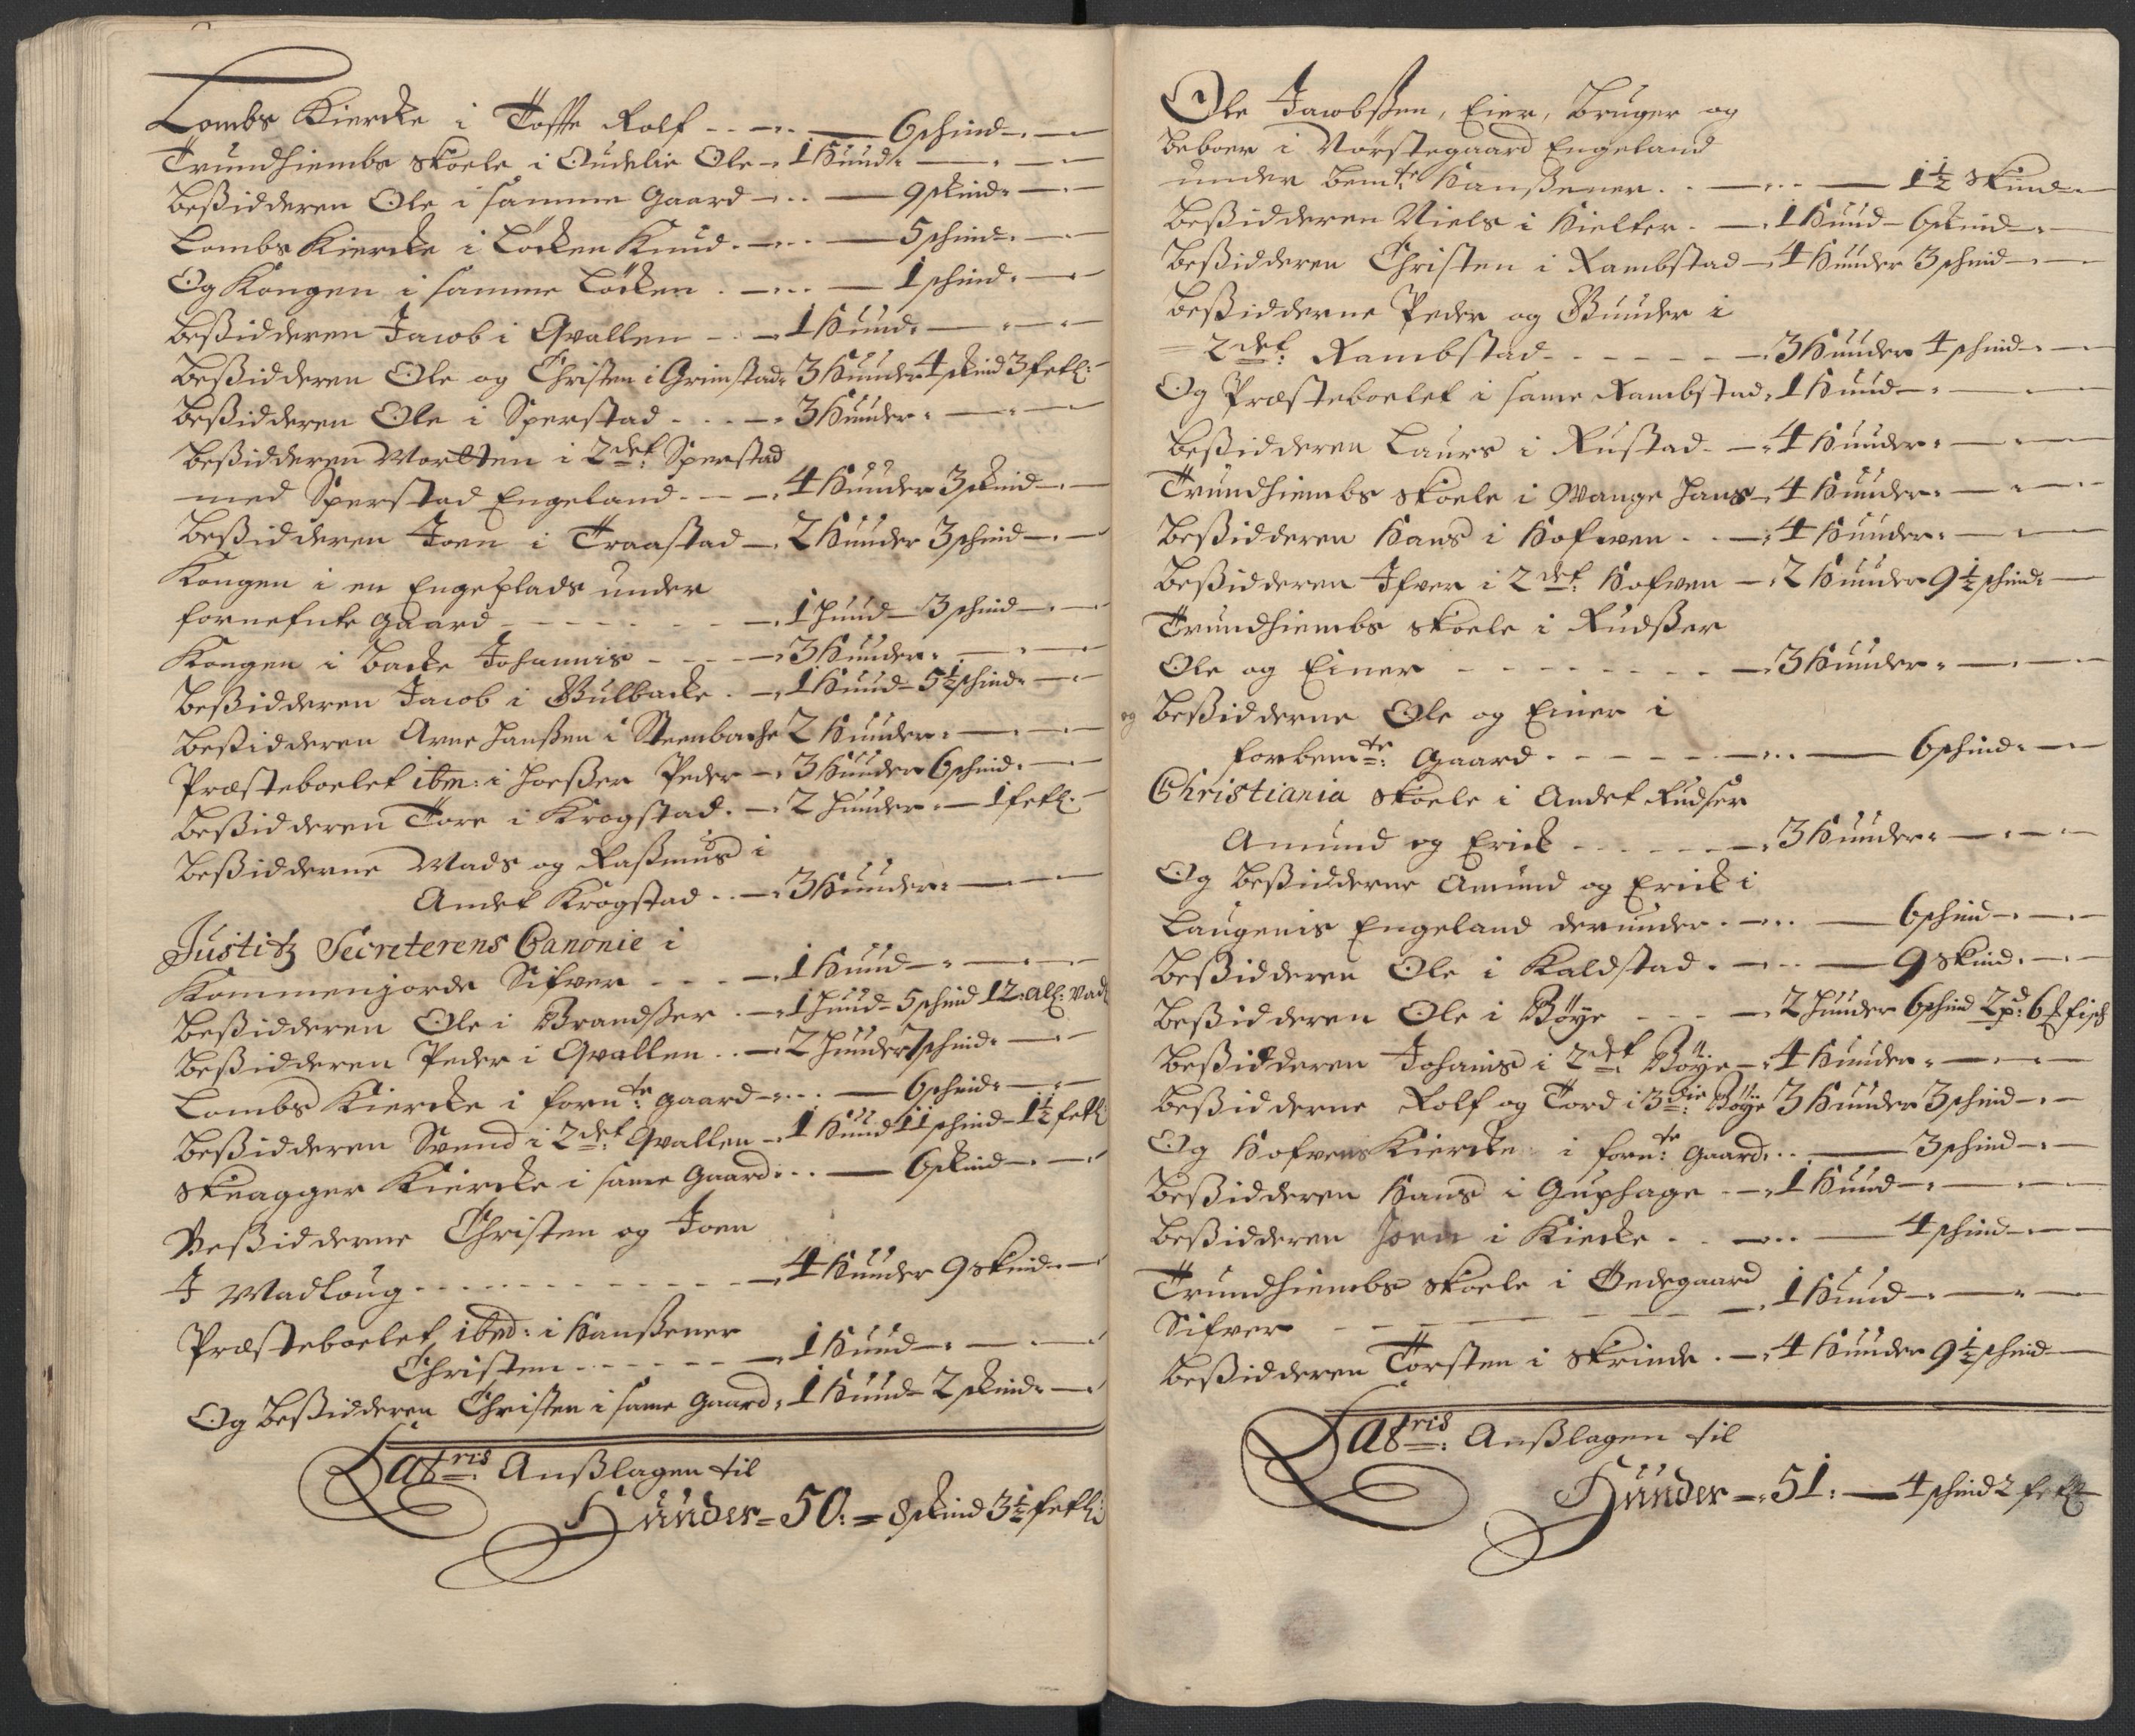 Lombs Kiercke i Toffte Rolf - 6 schind
Trundhiembs Skoele i Qudelie Ole - 1 Hund
beßidderen Ole i samme Gaard - 9 skind
Lombs Kiercke i Löcken Knud - 5 schind
Og Kongen i samme Löcken - 1 schind
beßidderen Jacob i Qvallen - 1 Hund
beßidderen Ole og Christen i Grimstad 3 Hunder 4 skind 3 fetl:
beßidderen Ole i Sperstad - 3 Hunder
beßidderen Mortten i 2det Sperstad
med Sperstad Engeland - 4 Hunder 3 skind
beßidderen Joen i Traastad - 2 Hunder 3 schind
Kongen i en Engeplads under
fornefnte Gaard - 1 Hund - 3 schind
Kongen i Backe Johannis - 3 Hunder
beßidderen Jacob i Bulbacke - 1 Hund - 5 1/2 schind
beßidderen Arne Hanßen i Steenbache 2 Hunder
Præsteboelet ibm: i Hoeßer Peder - 3 Hunder 6 schind
beßidderen Tore i Krogstad - 2 Hunder - 1 fetl:
beßidderne Mads og Raßmus i
Andet Krogstad - 3 Hunder
Justitz Secreterens Canonie i
Kommenjorde Sifver - 1 Hund
beßidderen Ole i Brandßer - 1 Hund - 5 schind 12: All: Vad
beßidderen Peder i Qvallen - 2 Hunder 7 schind
Lombs Kiercke i fornte: Gaard - 6 schind
beßidderen Svend i 2det: Qvallen - 1 Hund 11 schind - 1 1/2 fetl:
Skeagger Kiercke i same Gaard - 6 skind
Beßidderne Christen og Joen
I Madloug - 4 Hunder 9 Skind
Præsteboelet ibid: i Hanßener
Christen - 1 Hund
Og beßidderen Christen i same Gaard, 1 Hund - 2 skind
Latris: Anßlagen til
Hunder = 50: = 8 skind 3 1/2 fetl:
Ole Jacobßen, Eier, Bruger og
beboer i Nörstegaard Engeland
under bemte: Hanßener - 1 1/2 Skind
beßidderen Niels i Hielter - 1 Hund - 6 skind
beßidderen Christen i Rambstad - 4 Hunder 3 schind
beßidderne Peder og Gunder i
2det: Rambstad - 3 Hunder 4 schind
Og Præsteboelet i same Rambstad, 1 Hund
beßidderen Laurs i Rustad - 4 Hunder
Trundhiembs Skoele i Wange Hans - 4 Hunder
beßidderen Hans i Hofwen - 4 Hunder
beßidderen Ifver i 2det: Hofven - 2 Hunder 9 1/2 schind
Trundhiembs Skoele i Rudßer
Ole og Einer - 3 Hunder
og beßidderne Ole og Einer i
forbemte: Gaard - 6 schind
Christiania Skoele i Andet Rudser
Amund og Erick - 3 Hunder
Og beßidderne Amund og Erick i
Laugenis Engeland derunder - 6 schind
beßidderen Ole i Kaldstad - 9 Skind
beßidderen Ole i Böye - 2 Hunder 6 schind 2 pd: 6 ℔ fisch
beßidderen Johanis i 2det Böye - 4 Hunder
beßidderne Rolf og Tord i 3die: Böye 3 Hunder 3 schind
Og Hofvens Kiercke i fornte: Gaard - 3 schind
beßidderen Hans i Guphage - 1 Hund
beßidderen Joen i Kircke - 4 schind
Trundhiembs Skoele i Ödegaard
Sifver - 1 Hund
beßidderen Torsten i Skrinde - 4 Hunder 9 1/2 schind
Latris: Anßlagen til
Hunder = 51: - 4 schind 2 fetl: